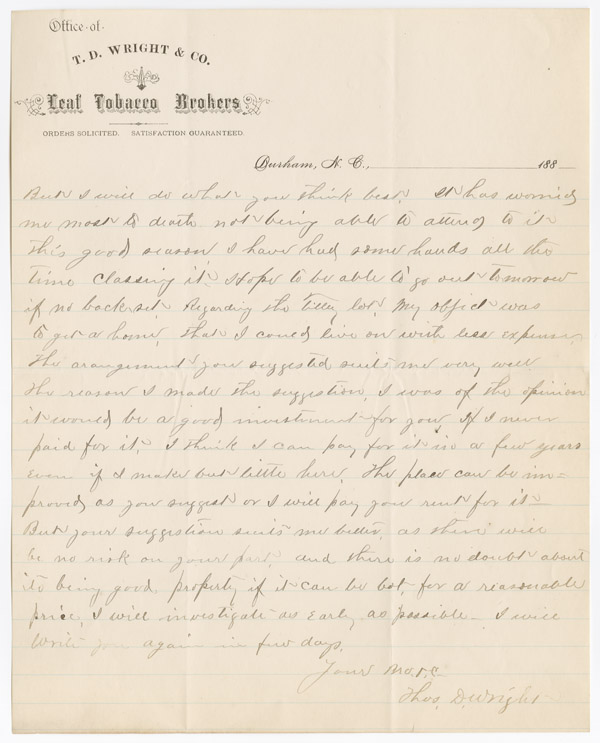 Office of
T. D. WRIGHT & CO.
Leaf Tobacco Brokers
ORDERS SOLICITED. SATISFACTION GUARANTEED.
Durham, N. C., 188
But I will do what you think best. It has worried
me most to death not being able to attend to it
this good season, I have had some hands all the
time classing it. Hope to be able to go out tomorrow
if no backset. Regarding the Tilley lot, My object was
to get a home, that I could live on with less expense,
the arangement you suggested suits me very well
the reason I made the suggestion, I was of the opinion
it would be a good investment for you, If I never
paid for it. I think I can pay for it in a few years
Even if I make but little here. The place can be im=
proved as you suggest or I will pay you rent for it
But your suggestion suits me better, as there will
be no risk on your part, and there is no doubt about
its being good property if it can be bot, for a reasonable
price, I will investigate as early as possible - I will
write you again in few days.
Your
Thos. D. Wright